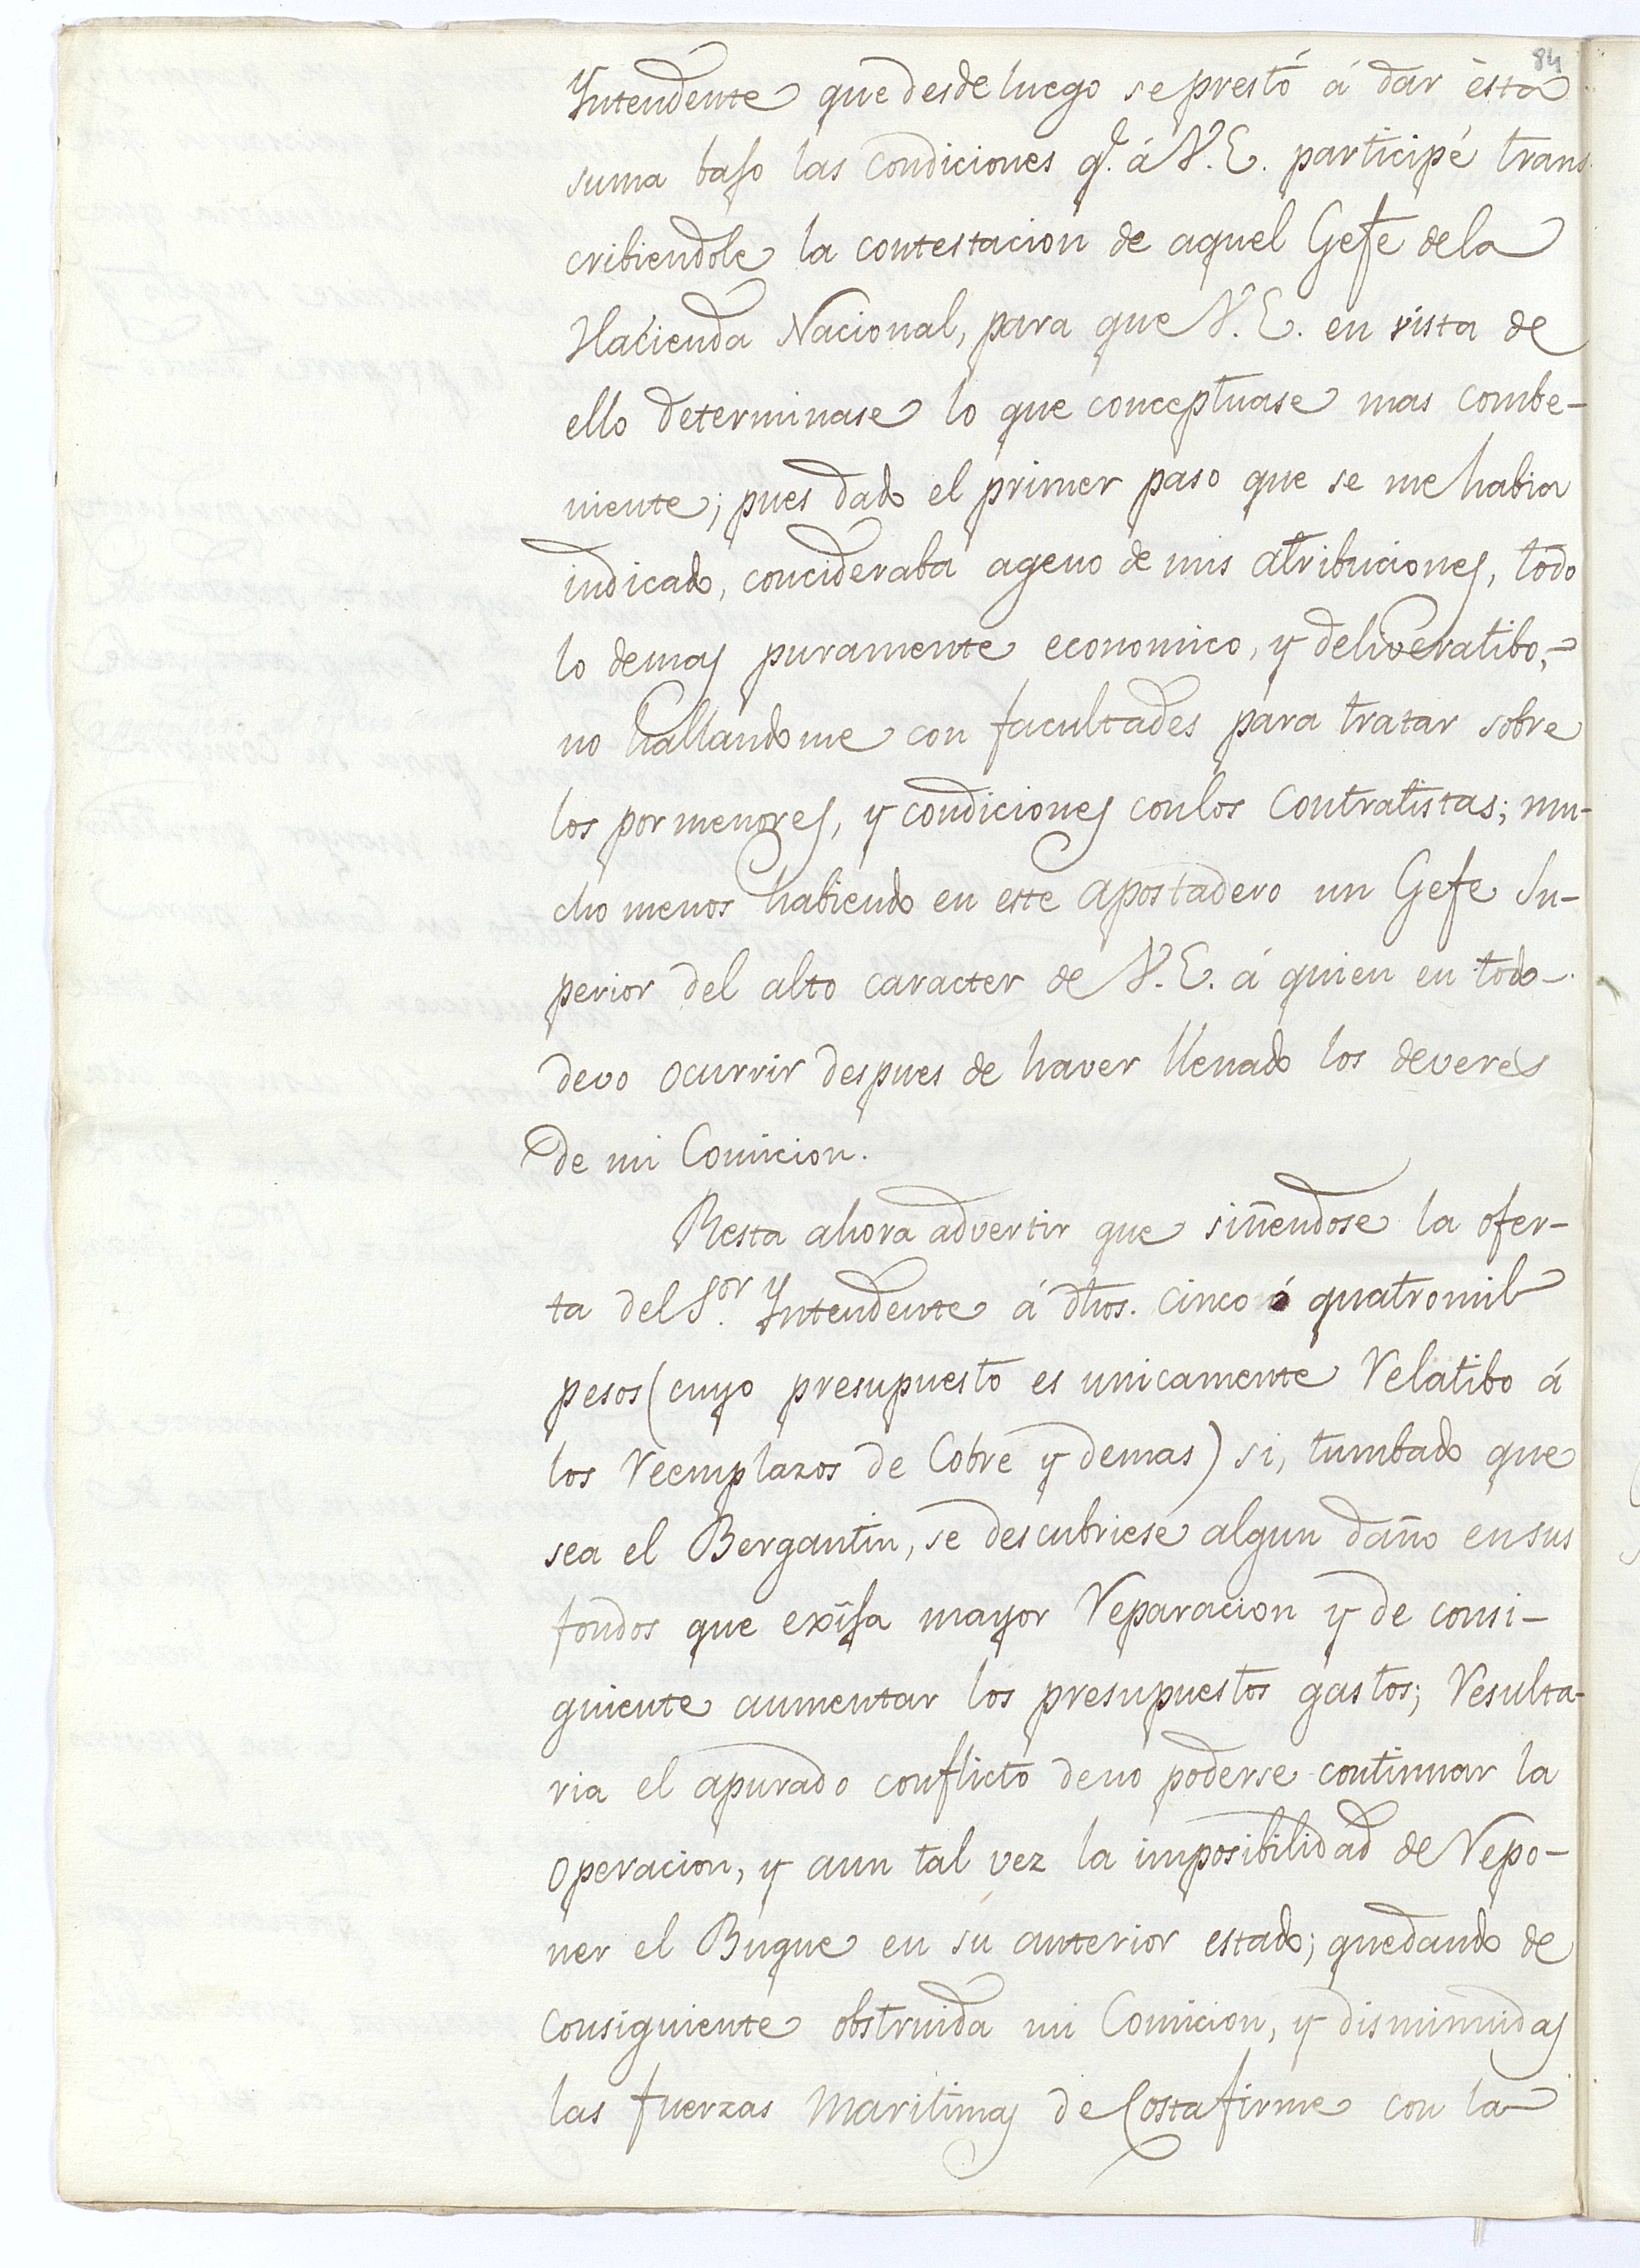 84
Yntendente que desde luego se prestó á dar ésta
suma bajo las condiciones q.e á V.E. participé trans
cribiendole la contestacion de aquel Gefe de la
Hacienda Nacional, para que V.E. en vista de
ello determinase lo que conceptuase mas combe-
niente; pues dado el primer paso que se me habia
indicado, concideraba ageno de mis atribuciones, todo
lo demas puramente economico, y deliveratibo,
no hallandome con facultades para tratar sobre
los por menores, y condiciones con los Contratistas; mu-
cho menos habiendo en este apostadero un Gefe Su-
perior del alto caracter de V.E. á quien en todo
devo ocurrir despues de haver llenado los deveres
de mi Comicion.
Resta ahora advertir que siñendose la ofer-
ta del S.or Yntendente á dhos. cinco ó quatro mil
pesos (cuyo presupuesto es unicamente relatibo á
los reemplazos de Cobre y demas) si, tumbado que
sea el Bergantin, se descubriese algun daño en sus
fondos que exija mayor reparacion y de consi-
guiente aumentar los presupuestos gastos; resulta-
ria el apurado conflicto de no poderse continuar la
operacion, y aun tal vez la imposibilidad de repo-
ner el Buque en su anterior estado; quedando de
consiguiente obstruida mi Comicion, y disminuidas
las fuerzas maritimas de Costafirme con la